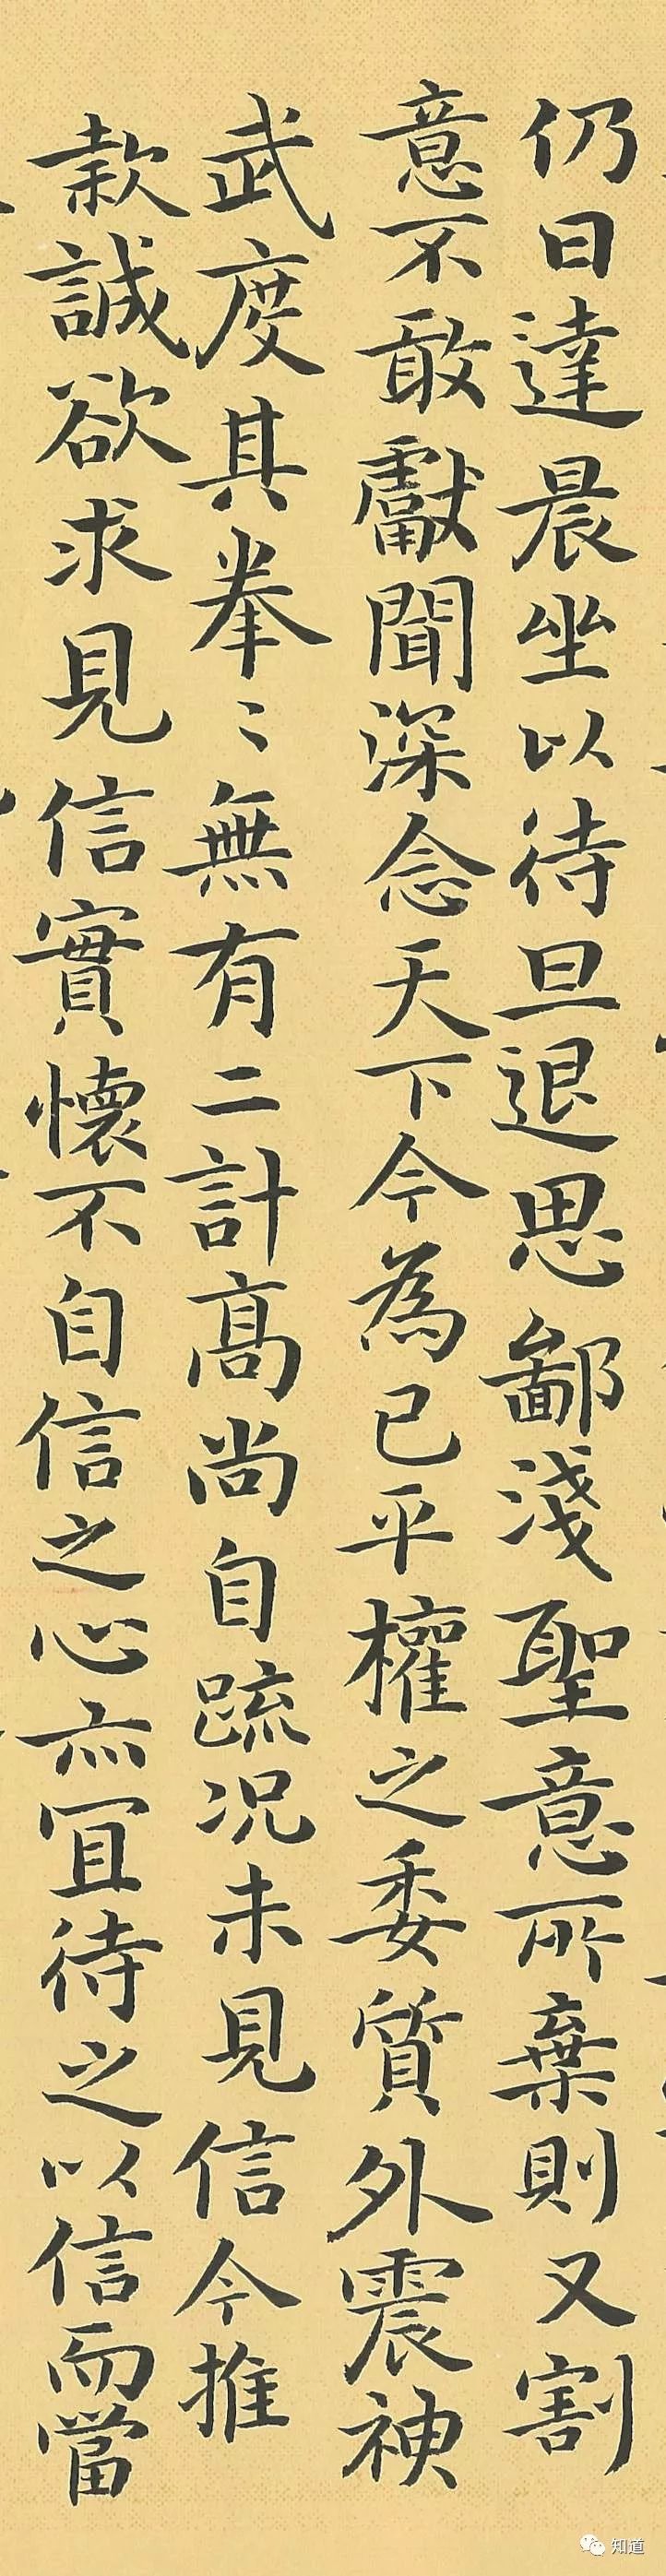 仍日達晨坐以待旦退思鄙淺聖意所棄則又割
意不敢獻聞深念天下今為已平權之委質外震神
武度其拳〻無有二計高尚自疏况未見信今推
款誠欲求見信實懷不自信之心亦宜待之以信而當
知道